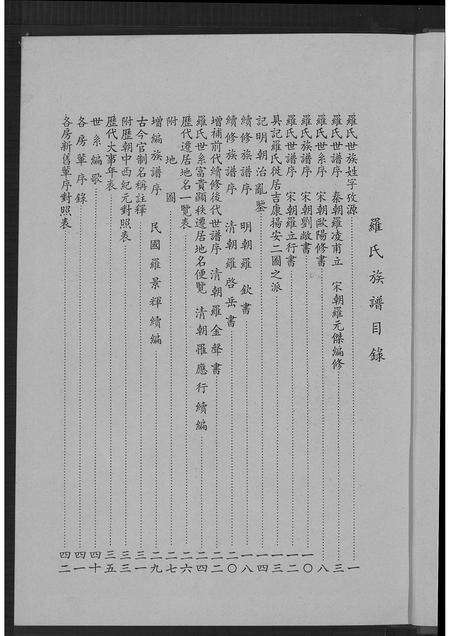 羅氏族譜目錄
羅氏世族姓字攷源……一
羅氏世譜序 秦朝羅凌甫立 宋朝羅元傑編修……三
羅氏世系序 宋朝歐陽修書……八
羅氏族譜序 宋朝劉敞書……一〇
羅氏世譜序 宋朝羅立行書……一二
具記羅氏徙居吉康揚安二圖之派……一三
記明朝治亂鑒……一四
續修族譜序 明朝羅欽書……一八
續修族譜序 清朝羅啓岳書……二〇
增補前代續修後代世譜序 清朝羅金聲書……二二
羅氏世系富貴顯秩遷居地名便覽 清朝羅應行續編……二四
歷代遷居地名一覽表……二六
附地圖……二七
增編族譜序 民國羅景輝續編……二九
古今官制名稱註釋……三一
附歷朝中西紀元對照表……三三
歷代大事年表……三五
世系編歌……四十
各房單序錄……四一
各房新舊單序對照表……四二